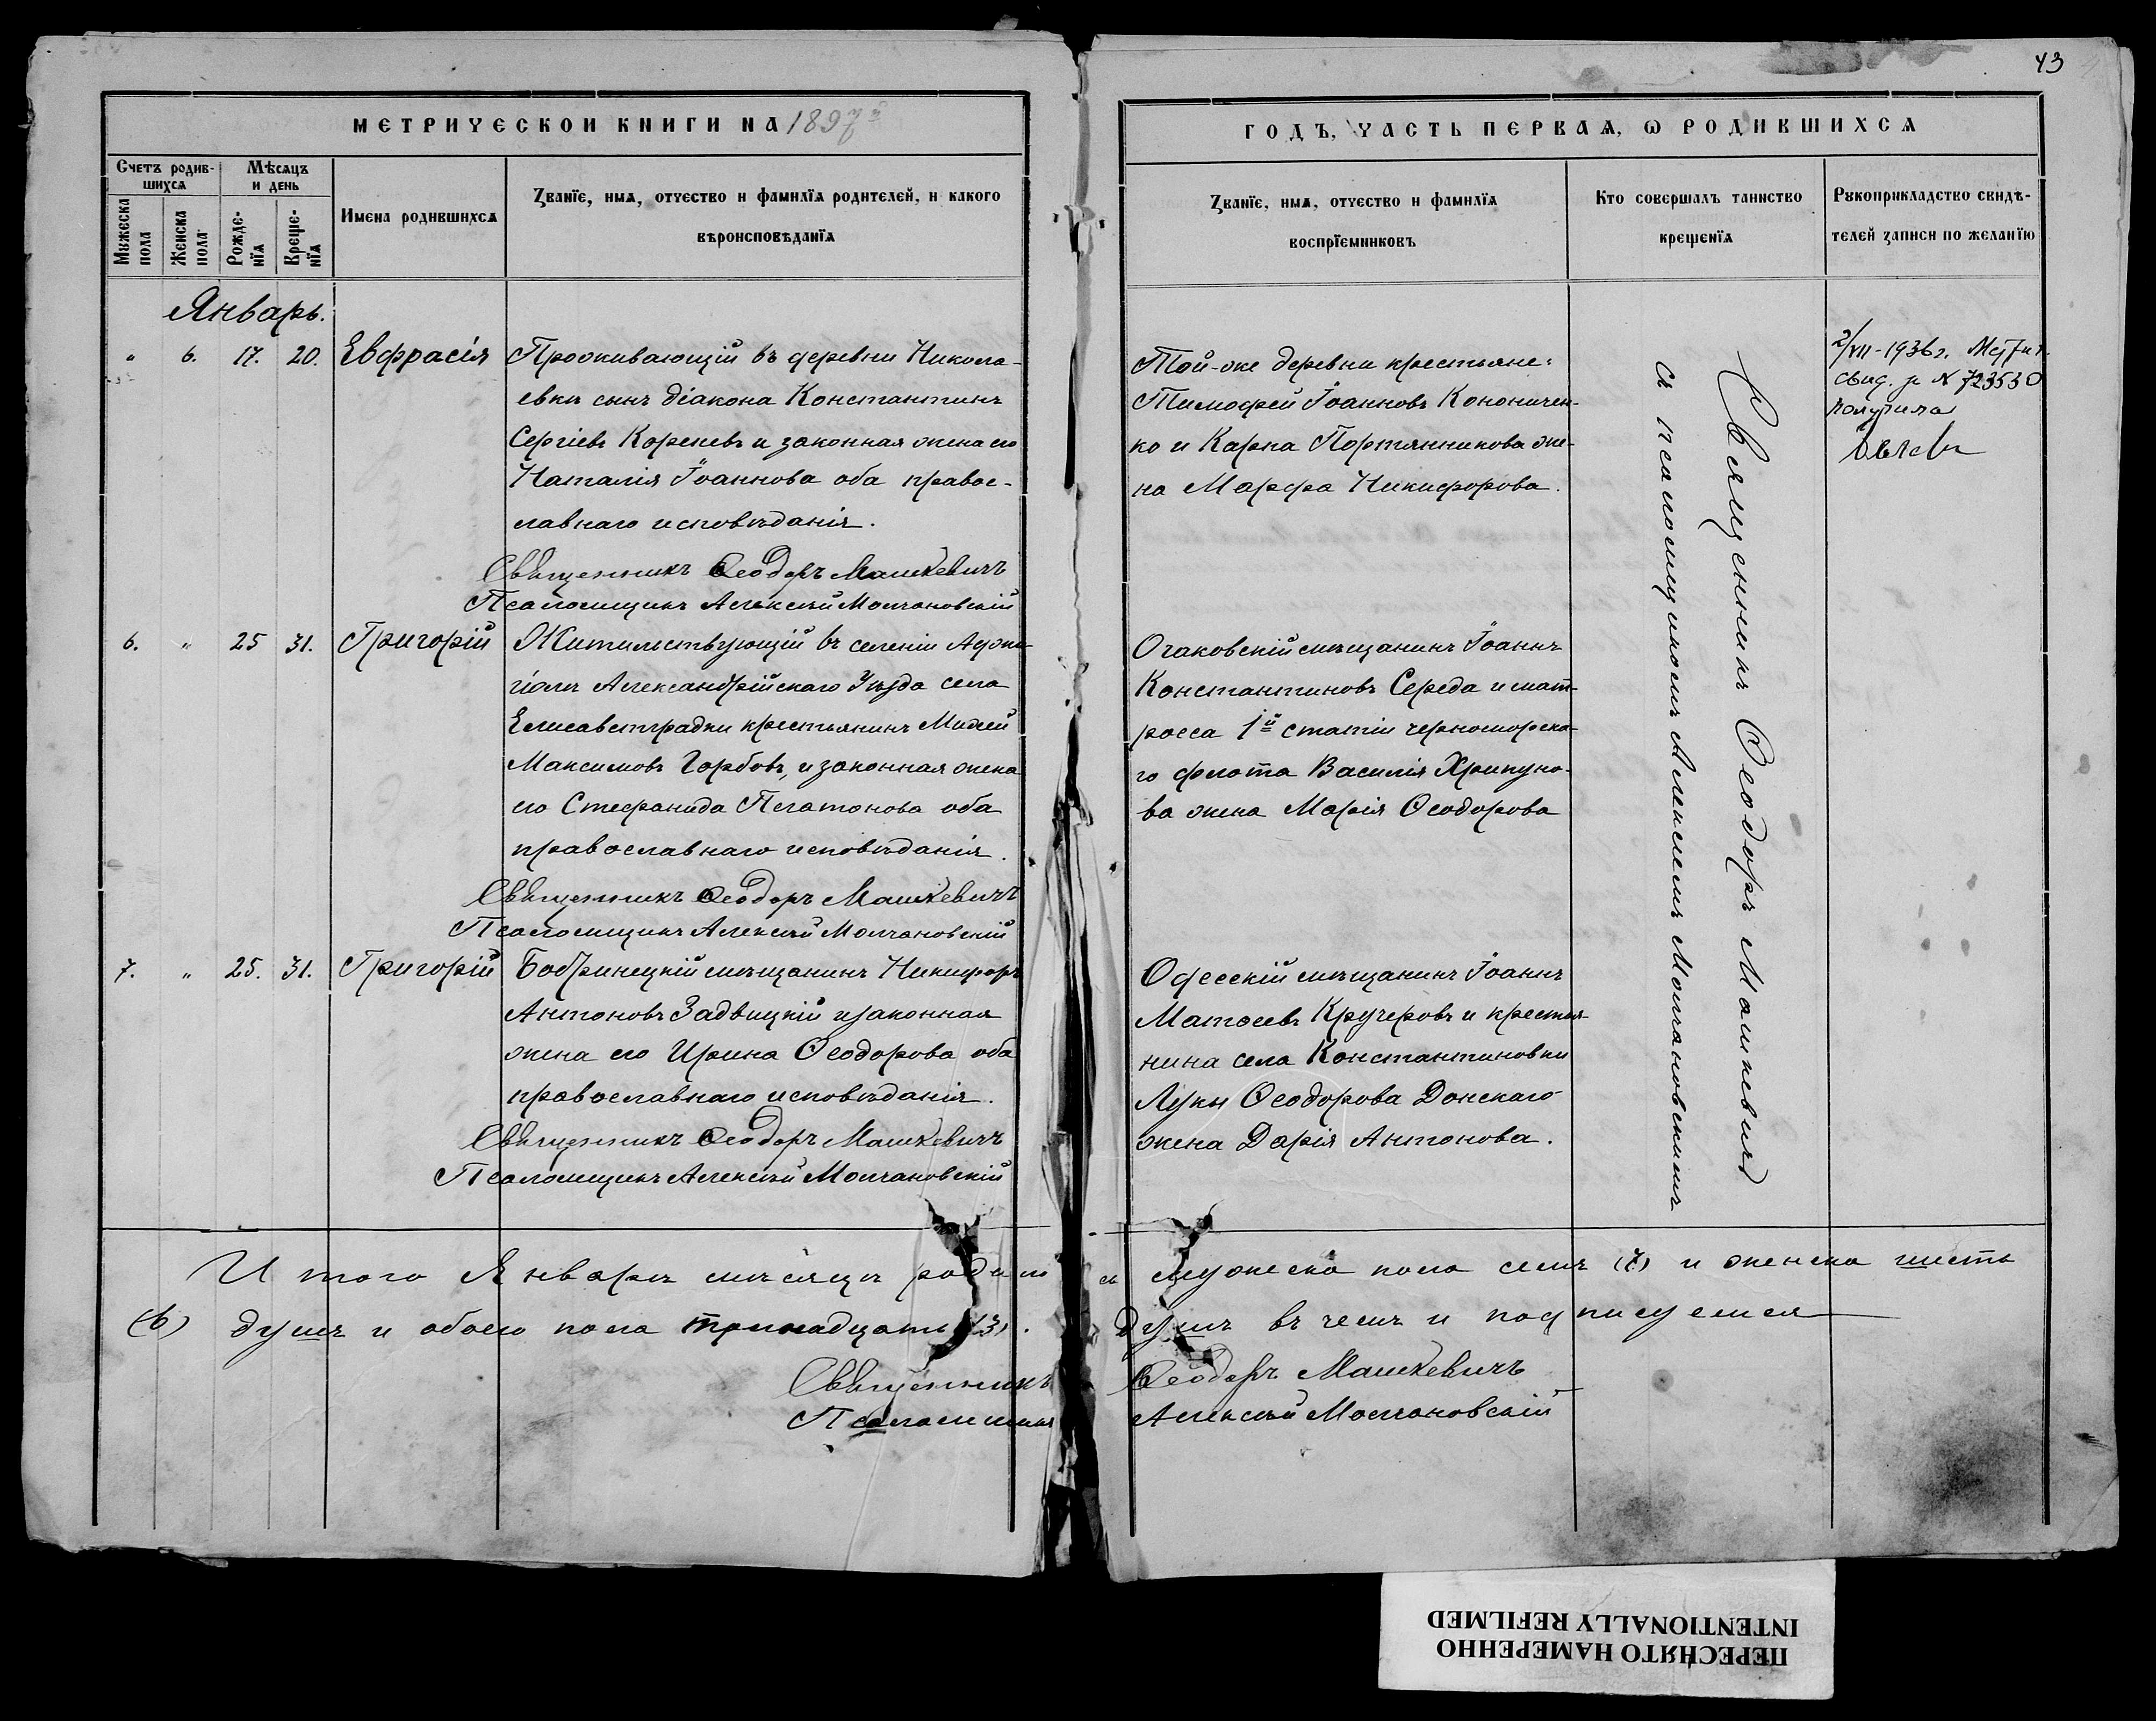 43
МЕТРИЧЕСКОЙ КНИГИ НА 1897й
ГОДЪ, ЧАСТЬ ПЕРВАЯ, Ѡ РОДИВШИХСЯ
Счетъ родив-
шихся
Мужеска
пола
Женска
пола
Мѣсяцъ
и день
Рожде-
нїя
Креще-
нїя
Имена родившихся
Званїе, имя, отчество и фамилїя родителей, и какого
вѣроисповѣданїя
Званїе, имя, отчество и фамилїя
воспрїемниковъ
Кто совершалъ таинство
крещенїя
Рукоприкладство свидѣ-
телей записи по желанїю
Январь.
" 6. 17. 20. Евфрасія
Проживающій въ деревни Никола-
евки сынъ діакона Константинъ
Сергіевъ Кореневъ и законная жена его
Наталія Іоаннова оба правос-
лавнаго исповѣданія.
Священникъ Ѳеодоръ Машкевичъ
Псаломщикъ Алексѣй Молчановскій
Той-же деревни крестьяне:
Тимофей Іоанновъ Кононичен-
ко и Карпа Портянникова же-
на Марфа Никифорова.
2/VII-1936 г. Метрич.
свид. за № 723530
получила
6. " 25 31. Григорій
Жительствующій въ селеніи Аджи-
гіолъ Александрійскаго Уѣзда села
Елисаветградки крестьянинъ
Максимовъ Горбовъ, и законная жена
его Стефанида Платонова оба
православнаго исповѣданія.
Священникъ Ѳеодоръ Машкевичъ
Псаломщикъ Алексѣй Молчановскій
Очаковскій мѣщанинъ Іоаннъ
Константиновъ Середа и мат-
росса 1й статіи черноморска-
го флота Василія Хрипуно-
ва жена Марія Ѳеодорова
7. " 25. 31. Григорій
Бобринецкій мѣщанинъ Никифоръ
Антоновъ Задвицкій и законная
жена его Ирина Ѳеодорова оба
православнаго исповѣданія.
Священникъ Ѳеодоръ Машкевичъ
Псаломщикъ Алексѣй Молчановскій
Одесскій мѣщанинъ Іоаннъ
Матѳеевъ Кучеровъ и крестья-
нина села Константиновки
Луки Ѳеодорова Донскаго
жена Дарія Антонова.
Священникъ Ѳеодоръ Машкевичъ
съ псаломщикомъ Алексѣемъ Молчановскимъ
Итого Январь мѣсяцъ родилось мужеска пола семъ (7) и женска шесть
(6) душъ и обоего пола тринадцать (13). Душъ въ чемъ и подписуемся
Священникъ Ѳеодоръ Машкевичъ
Псаломщикъ Алексѣй Молчановскій
ПЕРЕСНЯТО НАМЕРЕННО
INTENTIONALLY REFILMED